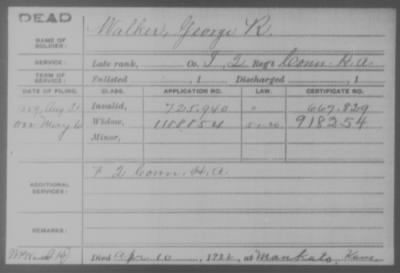 DEAD
NAME OF SOLDIER: Walker, George R.
SERVICE: Late rank, Co. I, 2 Reg't Conn. H.A.
TERM OF SERVICE: Enlisted , 1 Discharged , 1
DATE OF FILING. CLASS. APPLICATION NO. LAW. CERTIFICATE NO.
1889, Aug. Invalid, 725.940 " 667.829
1922 May 6 Widow, 1188854 918254
Minor,
ADDITIONAL SERVICES: 2 Conn. H.A.
REMARKS:
Died Apr. 10, 1922, at Mankato, Kans.